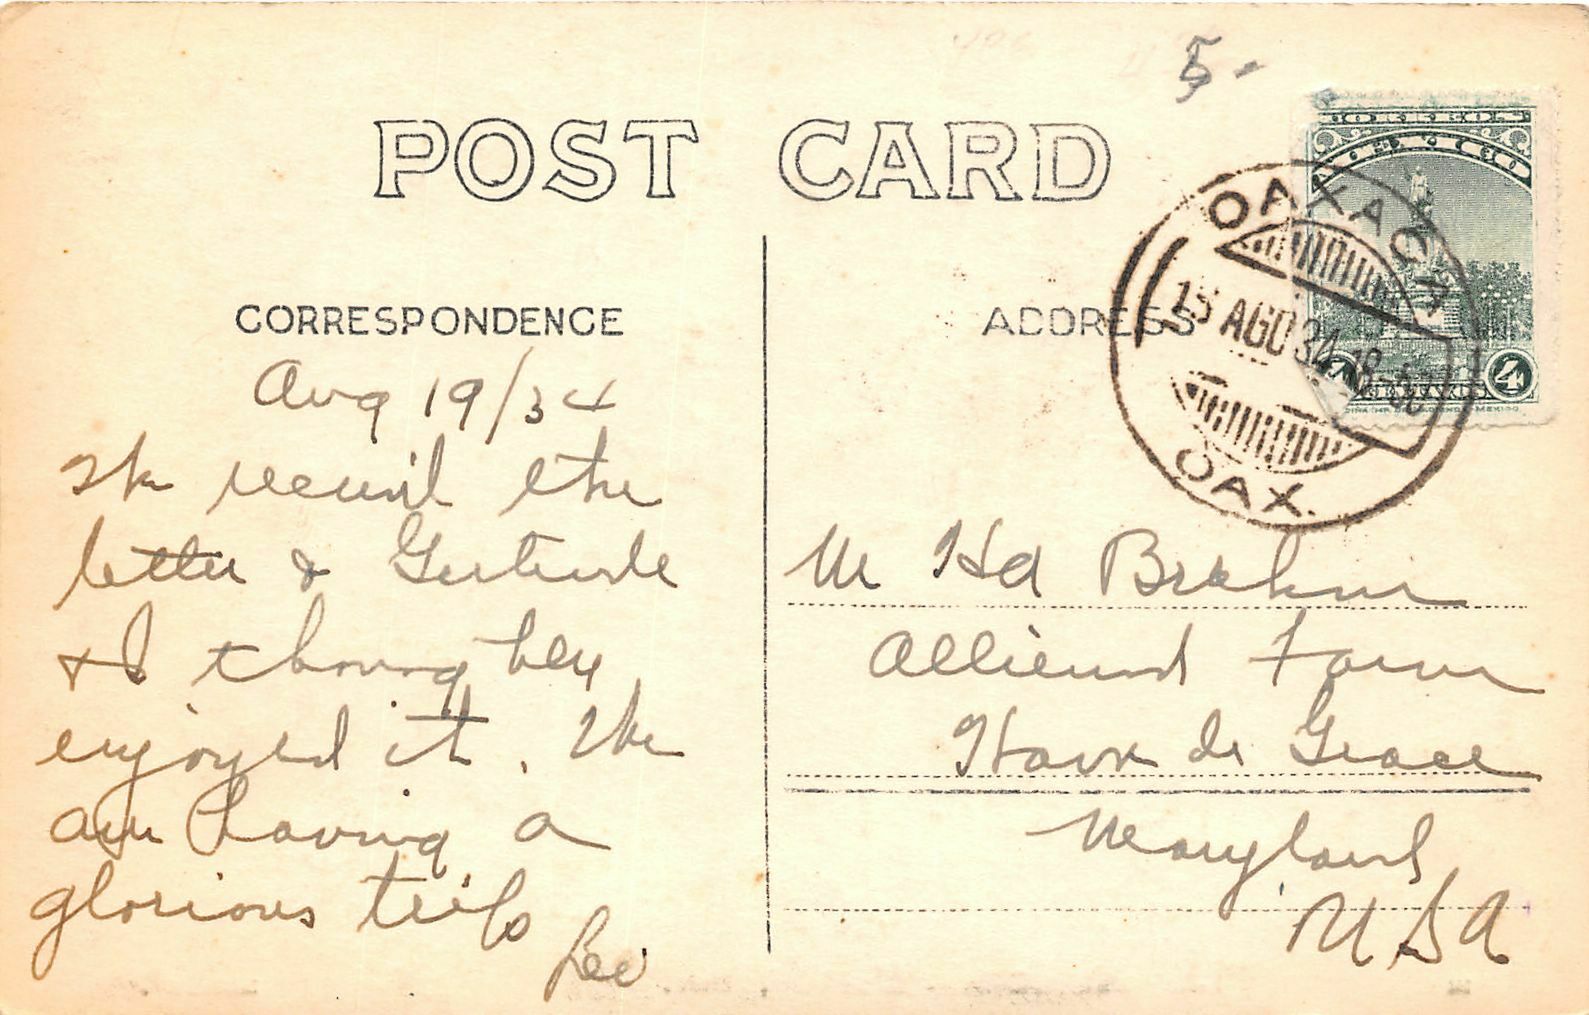 5-
POST CARD
CORREOS
MEXICO
OAXACA
15 AGO 34 18-30
OAX.
4
CORRESPONDENCE
Aug 19/34
We received the
letter & Gertrude
& I thoroughly
enjoyed it. We
are having a
glorious trip
ADDRESS
Mr Hd Brehm
Farm
Havre de Grace
Maryland
USA